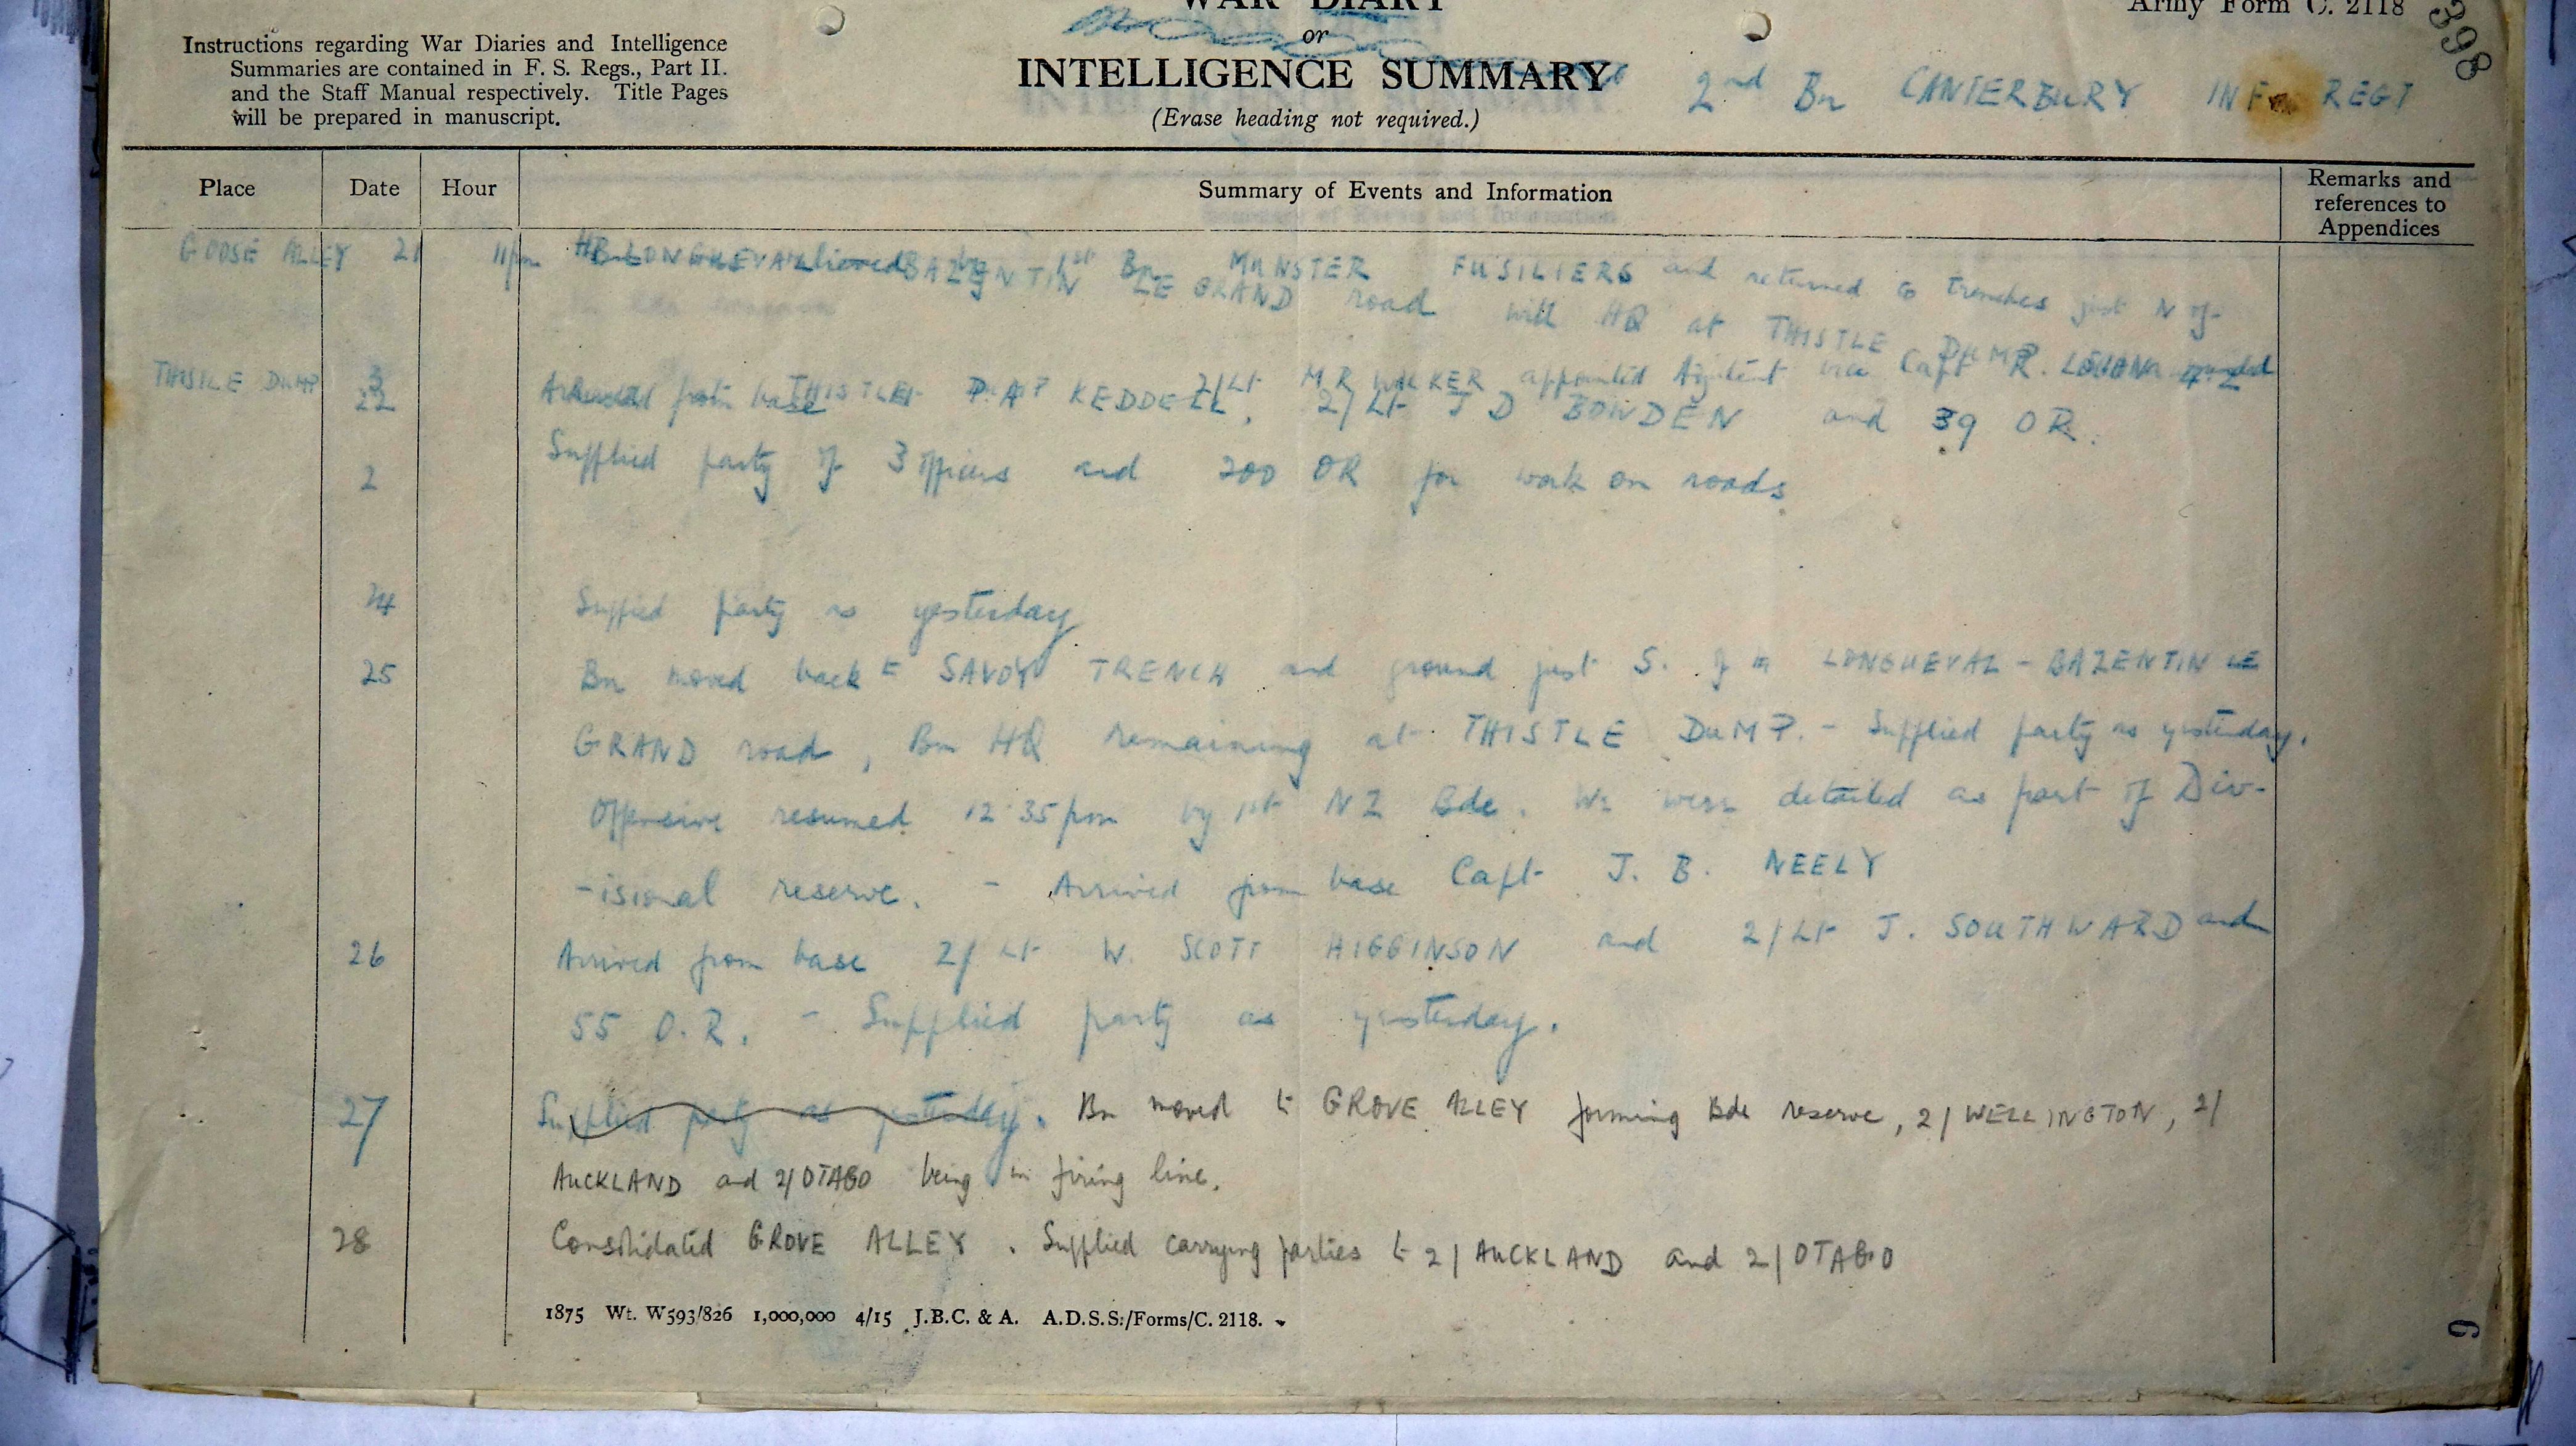 WAR DIARY
or
INTELLIGENCE SUMMARY
(Erase heading not required.)
Army Form C. 2118
398
Instructions regarding War Diaries and Intelligence
Summaries are contained in F. S. Regs., Part II.
and the Staff Manual respectively. Title Pages
will be prepared in manuscript.
2nd Bn CANTERBURY INF REGT
Place Date Hour Summary of Events and Information Remarks and references to Appendices
GOOSE ALLEY 21 11pm 1st Bn MUNSTER FUSILIERS and returned to trenches just N of
BAZENTIN LE GRAND road with HQ at THISTLE DUMP.
THISTLE DUMP 22 2/Lt M R WALKER appointed Adjutant vice Capt
Arrived from base P. A. KEDDELL, 2/Lt J D BOWDEN and 39 OR.
2 Supplied party of 3 officers and 200 OR for work on roads
24 Supplied party as yesterday
25 Bn moved back to SAVOY TRENCH and ground just S. of LONGUEVAL - BAZENTIN LE
GRAND road, Bn HQ remaining at THISTLE DUMP. - Supplied party as yesterday.
Offensive resumed 12.35 pm by 1st NZ Bde. We were detailed as part of Div-
-isional reserve. - Arrived from base Capt J. B. NEELY
26 Arrived from base 2/Lt W. SCOTT HIGGINSON and 2/Lt J. SOUTHWARD and
55 O.R. - Supplied party as yesterday.
27 Supplied party as yesterday. Bn moved to GROVE ALLEY forming Bde reserve, 2/WELLINGTON, 2/
AUCKLAND and 2/OTAGO being in firing line.
28 Consolidated GROVE ALLEY. Supplied carrying parties to 2/AUCKLAND and 2/OTAGO
1875 Wt. W593/826 1,000,000 4/15 J.B.C. & A. A.D.S.S./Forms/C. 2118.
9